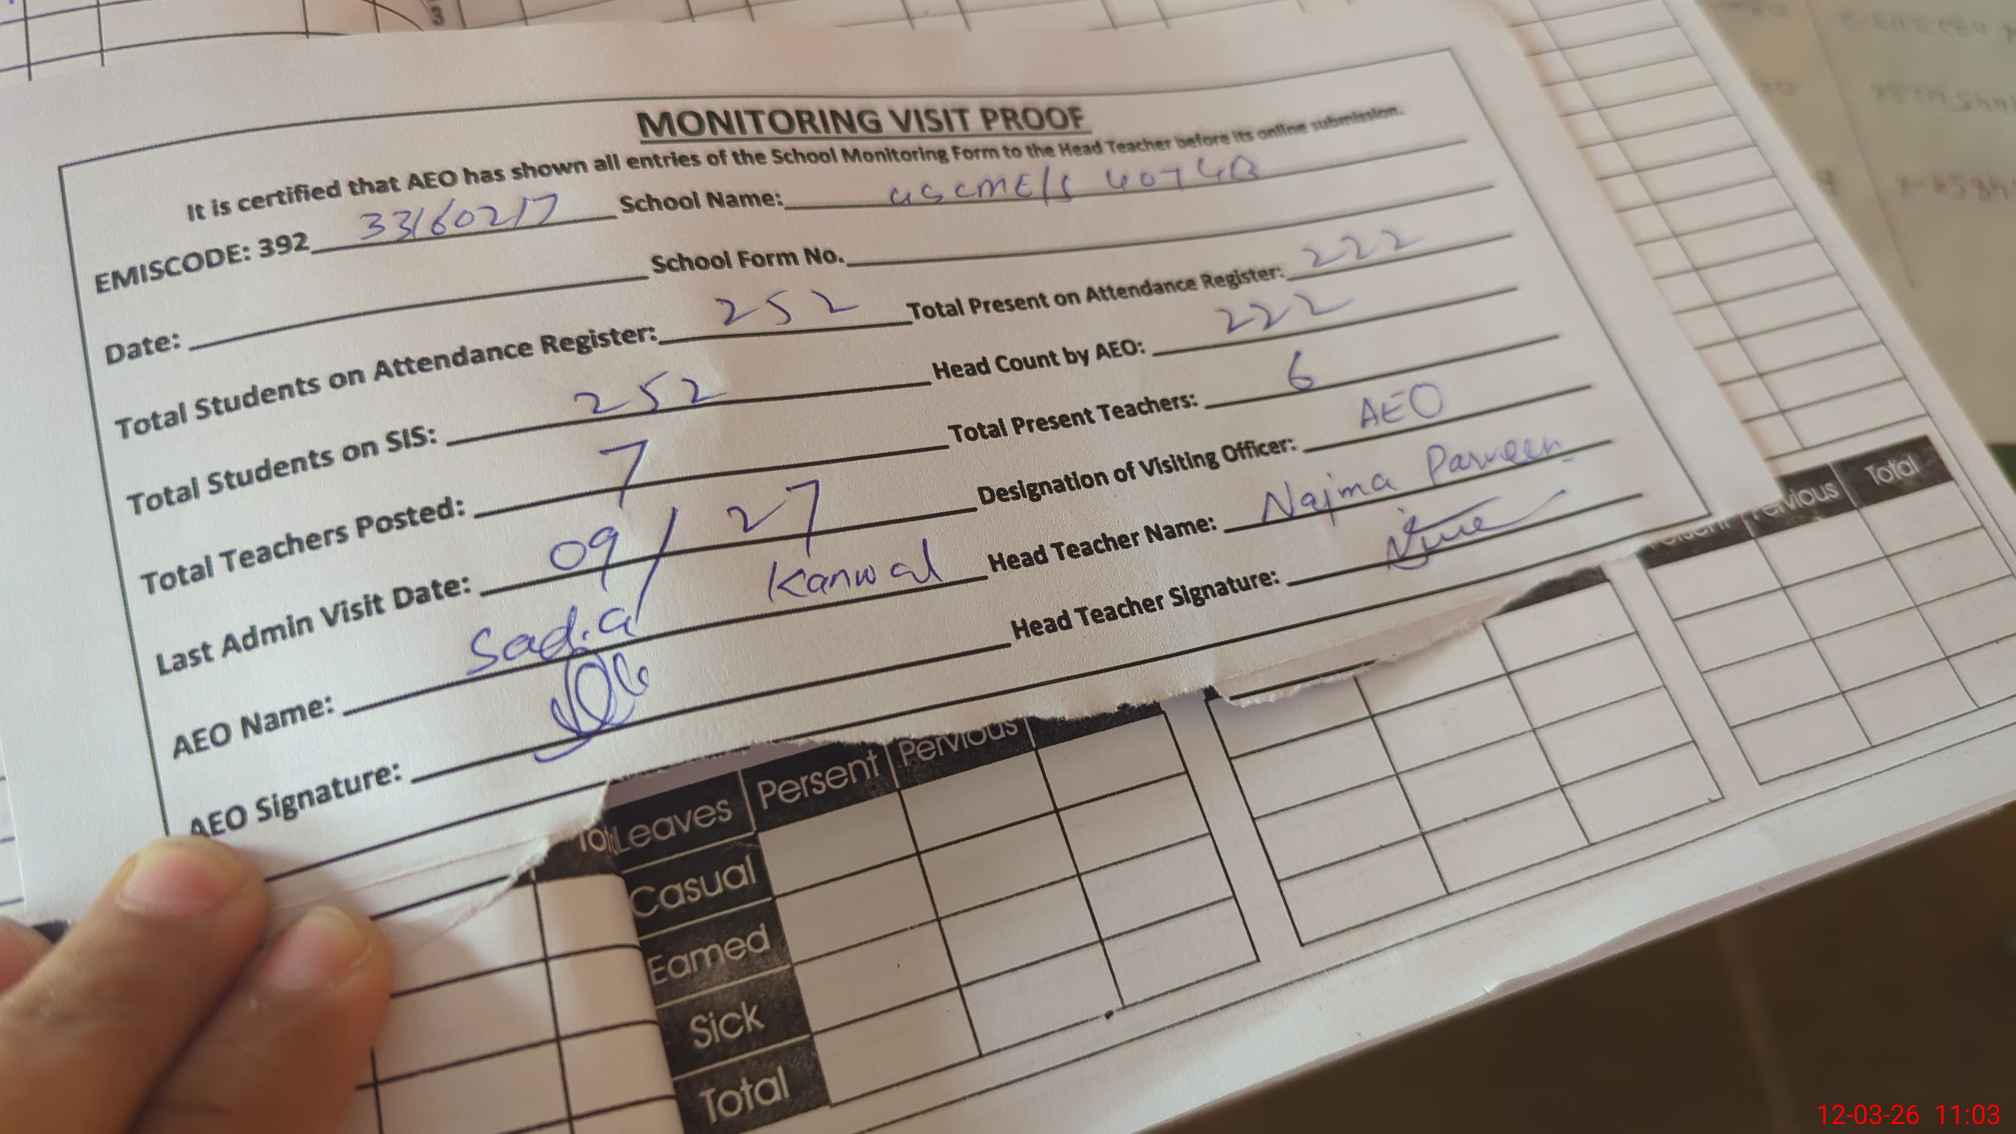 3
MONITORING VISIT PROOF
It is certified that AEO has shown all entries of the School Monitoring Form to the Head Teacher before its online submission.
EMISCODE: 392 33160217 School Name: GSCME/S 407 GB
Date: School Form No.
Total Students on Attendance Register: 252 Total Present on Attendance Register: 222
Total Students on SIS: 252 Head Count by AEO: 222
Total Teachers Posted: 7 Total Present Teachers: 6
Last Admin Visit Date: 09/27 Designation of Visiting Officer: AEO
AEO Name: Sadia Kanwal Head Teacher Name: Najma Parveen
AEO Signature: Head Teacher Signature:
Leaves Persent Pervious
Pervious Total
Casual
Earned
Sick
Total
12-03-26 11:03